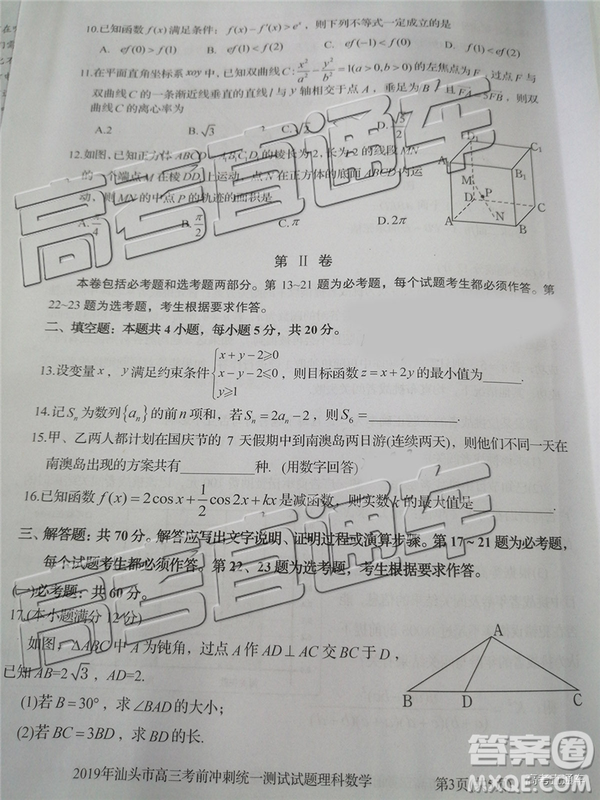 10.已知函数 f(x) 满足条件：f(x)−f′(x)>eˣ，则下列不等式一定成立的是
A. ef(0)>f(1) B. ef(0)<f(1) C. ef(−1)<f(0) D. ef(1)<f(2)
11.在平面直角坐标系 xoy 中，已知双曲线 C: x²/a² − y²/b² = 1(a>0,b>0) 的左焦点为F，过点 F 与
双曲线 C 的一条渐近线垂直的直线 l 与 y 轴相交于点 A，垂足为 B，且 则双
曲线 C 的离心率为
A.2 B.√3 C. D. √5/2
12.如图,已知正方体 的棱长为2,长为2的线段MN
的一个端点M在棱DD₁上运动，点N在正方体的底面ABCD内运
动，则MN的中点P的轨迹的面积是
A. π/4 B. π/2 C. π D. 2π
D₁ C₁ B₁ M D P C N A B
第 II 卷
本卷包括必考题和选考题两部分。第 13~21 题为必考题，每个试题考生都必须作答。第
22~23 题为选考题，考生根据要求作答。
二、填空题：本题共 4 小题，每小题 5 分，共 20 分。
13.设变量x，y满足约束条件 {x+y−2⩾0 x−y−2⩽0 y⩾1 ，则目标函数 z=x+2y 的最小值为______.
14.记 Sₙ 为数列{aₙ}的前 n 项和，若 Sₙ=2aₙ−2，则 S₆=______.
15.甲、乙两人都计划在国庆节的 7 天假期中到南澳岛两日游(连续两天)，则他们不同一天在
南澳岛出现的方案共有______种. (用数字回答)
16.已知函数 f(x)=2cosx+1/2cos2x+kx 是减函数，则实数k的最大值是______.
三、解答题：共 70 分。解答应写出文字说明、证明过程或演算步骤。第 17~21 题为必考题，
每个试题考生都必须作答。第 22、23 题为选考题，考生根据要求作答。
(一)必考题：共 60 分。
17.(本小题满分 12 分)
如图，△ABC 中 A 为钝角，过点 A 作 AD⊥AC 交 BC 于 D，
已知 AB=2√3，AD=2.
(1)若 B=30°，求∠BAD 的大小；
(2)若 BC=3BD，求 BC 的长.
A B D C
2019年汕头市高三考前冲刺统一测试试题理科数学
第3页
高考直通车
高考直通车
答案圈